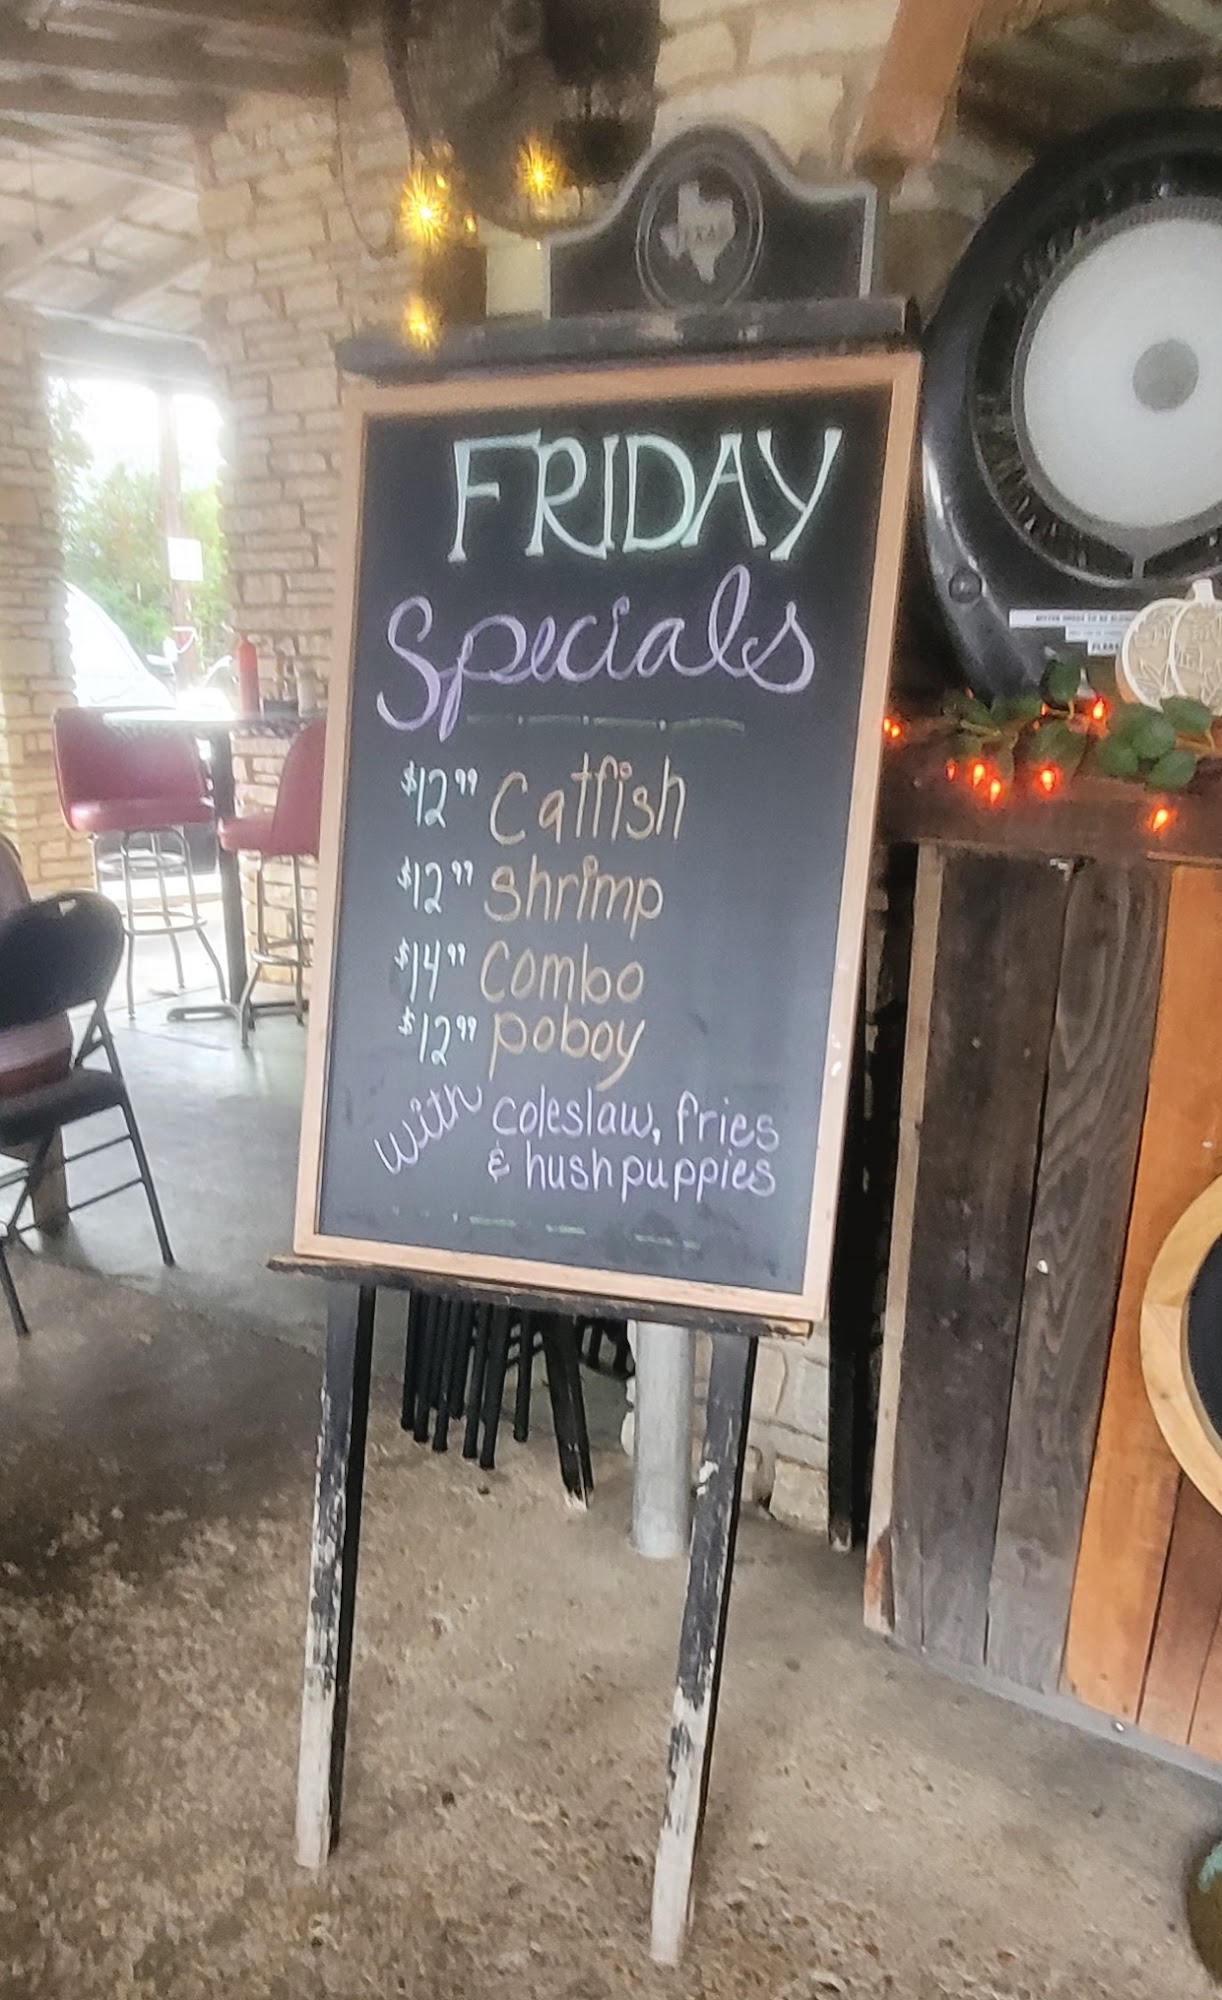 TEXAS
FRIDAY
Specials
$12.99 Catfish
$12.99 shrimp
$14.99 Combo
$12.99 poboy
with coleslaw, fries
& hushpuppies